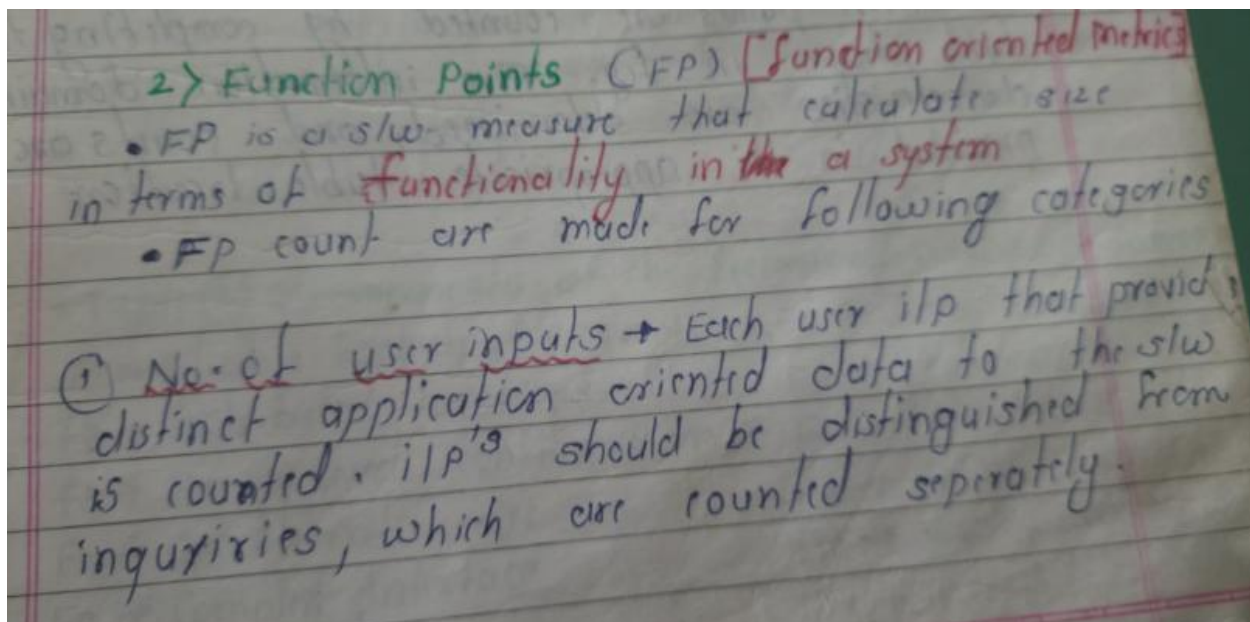 2> Function Points (FP) [function oriented metrics]
• FP is a s/w measure that calculate size
in terms of functionality in the a system
• FP count are made for following categories
① No. of user inputs → Each user i/p that provids
distinct application oriented data to the s/w
is counted. i/p's should be distinguished from
inquyiries, which are counted seperately.